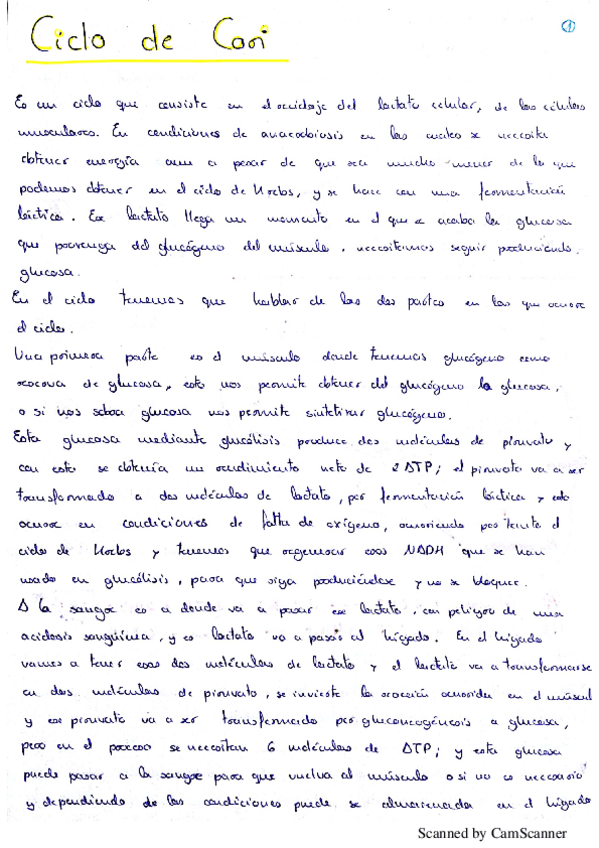 Ciclo de Cori
1
Es un ciclo que consiste en el reciclaje del lactato celular, de las células
musculares. En condiciones de anaerobiosis en las cuales se necesita
obtener energía aun a pesar de que sea mucho menor de la que
podemos obtener en el ciclo de Krebs, y se hace con una fermentación
láctica. Ese lactato llega un momento en el que se acaba la glucosa
que provenga del glucógeno del músculo, necesitamos seguir produciendo
glucosa.
En el ciclo tenemos que hablar de las dos partes en las que ocurre
el ciclo.
Una primera parte es el músculo donde tenemos glucógeno como
reserva de glucosa, esto nos permite obtener del glucógeno la glucosa,
o si nos sobra glucosa nos permite sintetizar glucógeno.
Esta glucosa mediante glucólisis produce dos moléculas de piruvato y
con esto se obtenía un rendimiento neto de 2 ATP; el piruvato va a ser
transformado a dos moléculas de lactato, por fermentación láctica y esto
ocurre en condiciones de falta de oxígeno, por tanto el
ciclo de Krebs y tenemos que regenerar esos NADH que se han
usado en glucólisis, para que siga produciéndose y no se bloquee.
A la sangre es a donde va a pasar ese lactato, con peligro de una
acidosis sanguínea, y es lactato va a pasar al hígado. En el hígado
vamos a tener esas dos moléculas de lactato y el lactato va a transformarse
en dos moléculas de piruvato, se invierte la reacción ocurrida en el múscul
y ese piruvato va a ser transformado por gluconeogénesis a glucosa,
pero en el proceso se necesitan 6 moléculas de ATP; y esta glucosa
puede pasar a la sangre para que vuelva al músculo o si no es necesario
y dependiendo de las condiciones puede se almacenada en el hígado
Scanned by CamScanner